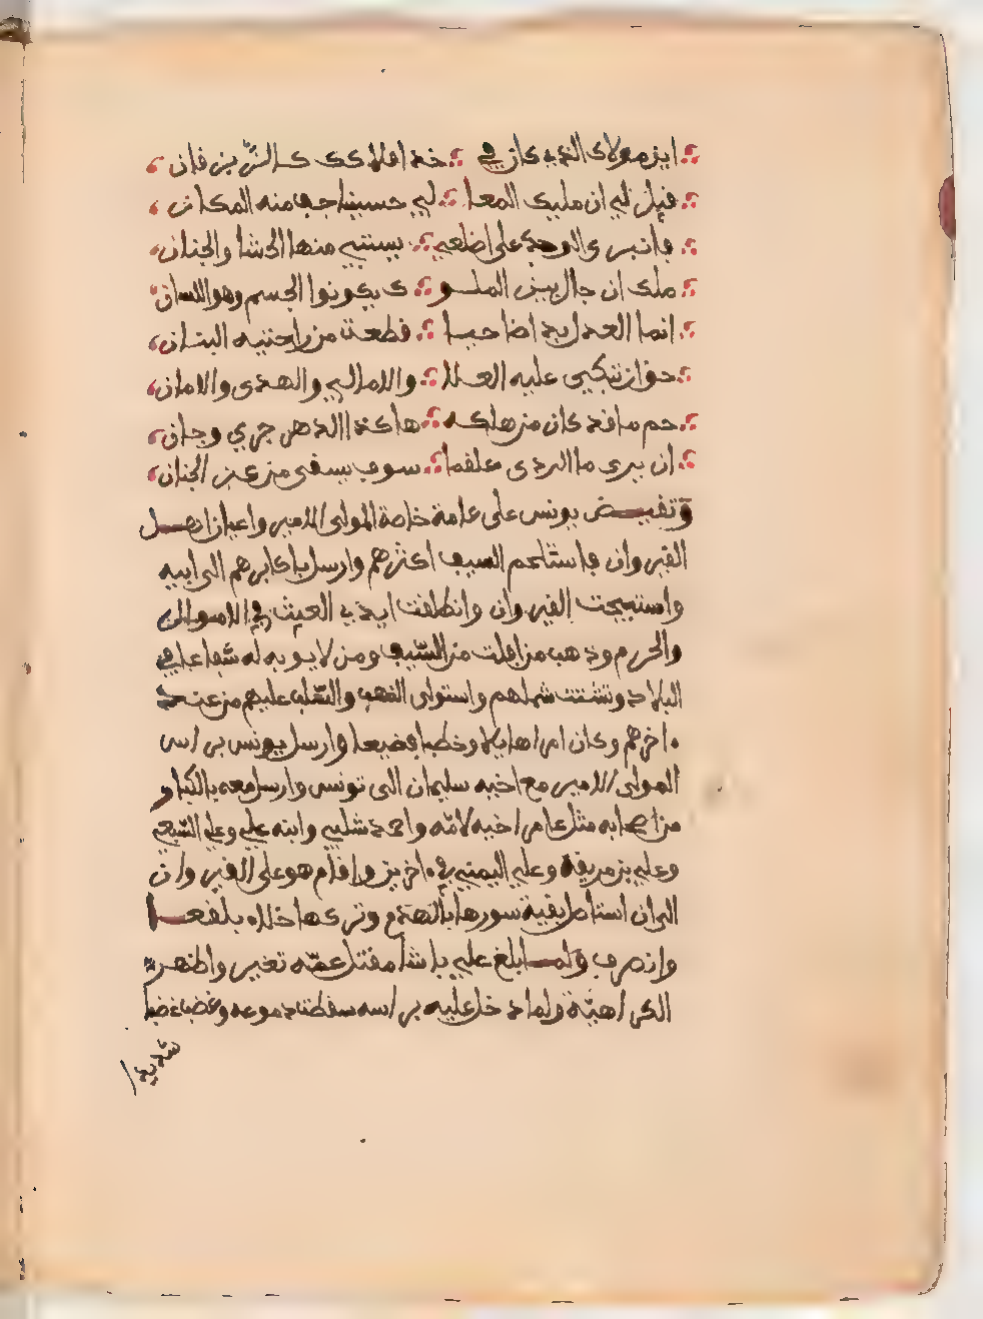 اين مولاى الذى كان فى ؞ خد افلاكك كالزبرقان
قيل لى ان مليك المعا ؞ لى حسينا جف منه المكان
فانبرى الوجد على اضلعى ؞ يستبى منها الحشا والجنان
ملك ان جال بين الملو ؞ ك يكونوا الجسم وهو اللسان
انما العدل يد اضاحيا ؞ قطعت من راحتيه البنان
حق ان تبكى عليه العلا ؞ والامالى والهدى والامان
حم ما قد كان من هلكه ؞ هاكذا الدهر جرى وجان
ان يرى ما الردى علقما ؞ سوف يسقى من عين الجنان
وتقبض يونس على عامة خاصة المولى الامير واعيان اهل
القيروان فاستلحم السيف اكثرهم وارسل باكابرهم الى ابيه
واستبيحت القيروان وانطلقت ايدى العيث فى الاموال
والحرم وذهب من افلت من السيف ومن لا يوبه له شعاعا فى
البلاد وتشتت شملهم واستولى النهب والسلب عليهم من عند
ءاخرهم وكان امرا هايلا وخطبا فضيعا وارسل يونس براس
المولى الامير مع اخيه سليمان الى تونس وارسل معه بالكبار
من اصحابه مثل عامر اخيه لامه واحمد شلبى وابنه على وعلى الشيعى
وعلى بن مريفة وعلى اليمنى فى ءاخرين واقام هو على القيروان
الى ان استاصل بقية سورها بالهدم وتركها خلاء بلقعا
وانصرف ولما بلغ على باشا مقتل عمه تغير واظهر
الكراهية ولما دخل عليه براسه سقطت دموعه وغضب غضبا
شديدا